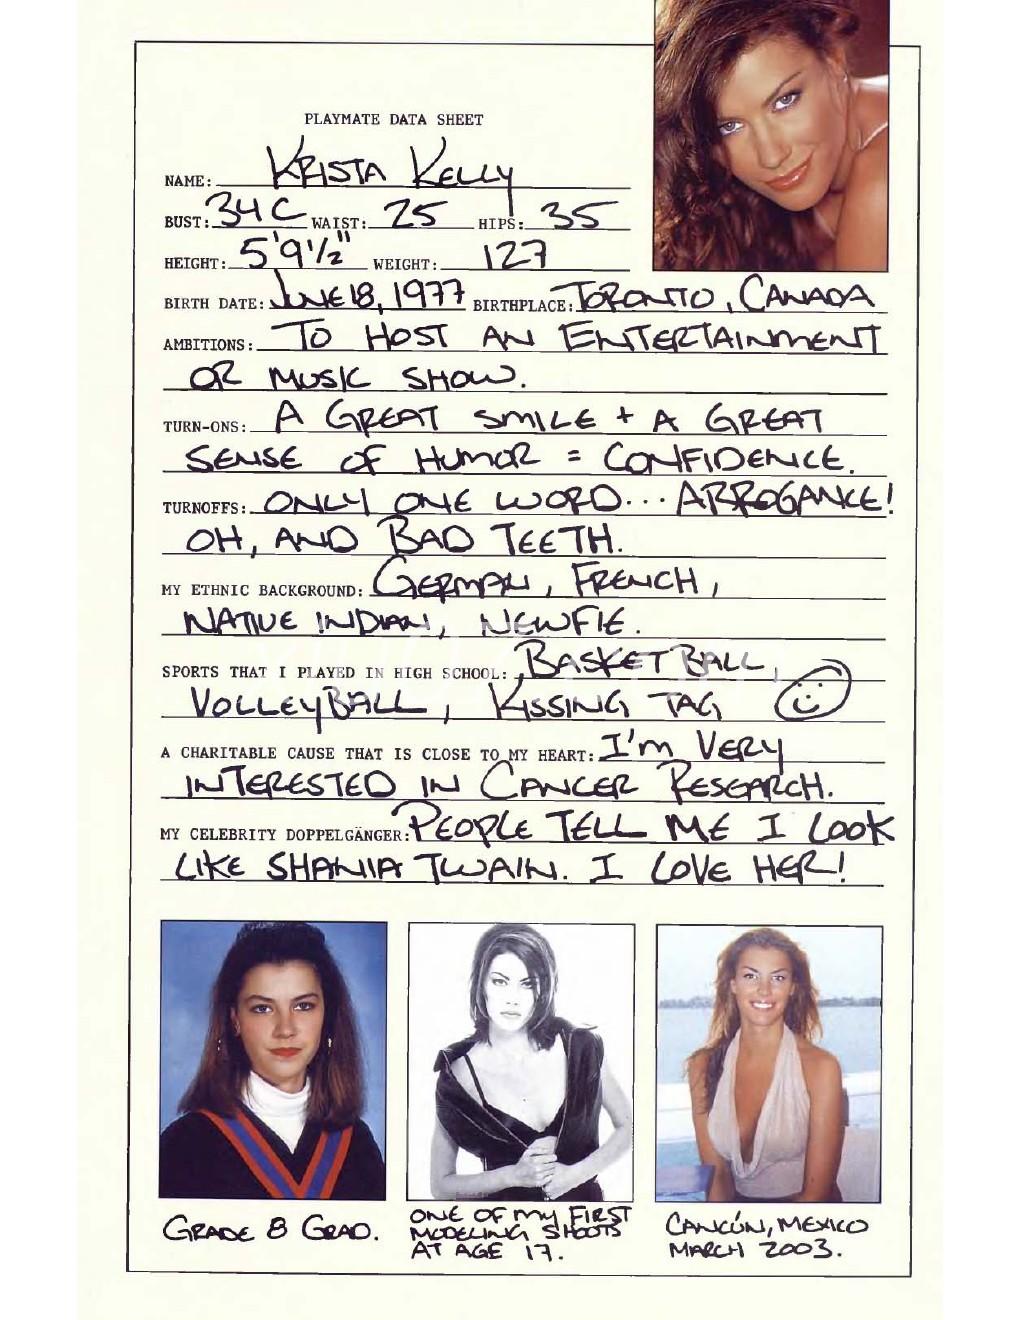 PLAYMATE DATA SHEET
NAME: KRISTA KELLY
BUST: 34C WAIST: 25 HIPS: 35
HEIGHT: 5'9½" WEIGHT: 127
BIRTH DATE: JUNE 18, 1977 BIRTHPLACE: TORONTO, CANADA
AMBITIONS: TO HOST AN ENTERTAINMENT
OR MUSIC SHOW.
TURN-ONS: A GREAT SMILE + A GREAT
SENSE OF HUMOR = CONFIDENCE.
TURNOFFS: ONLY ONE WORD... ARROGANCE!
OH, AND BAD TEETH.
MY ETHNIC BACKGROUND: GERMAN, FRENCH,
NATIVE INDIAN, NEWFIE.
SPORTS THAT I PLAYED IN HIGH SCHOOL: BASKETBALL,
VOLLEYBALL, KISSING TAG
A CHARITABLE CAUSE THAT IS CLOSE TO MY HEART: I'M VERY
INTERESTED IN CANCER RESEARCH.
MY CELEBRITY DOPPELGÄNGER: PEOPLE TELL ME I LOOK
LIKE SHANIA TWAIN. I LOVE HER!
GRADE 8 GRAD.
ONE OF MY FIRST
MODELING SHOOTS
AT AGE 17.
CANCÚN, MEXICO
MARCH 2003.